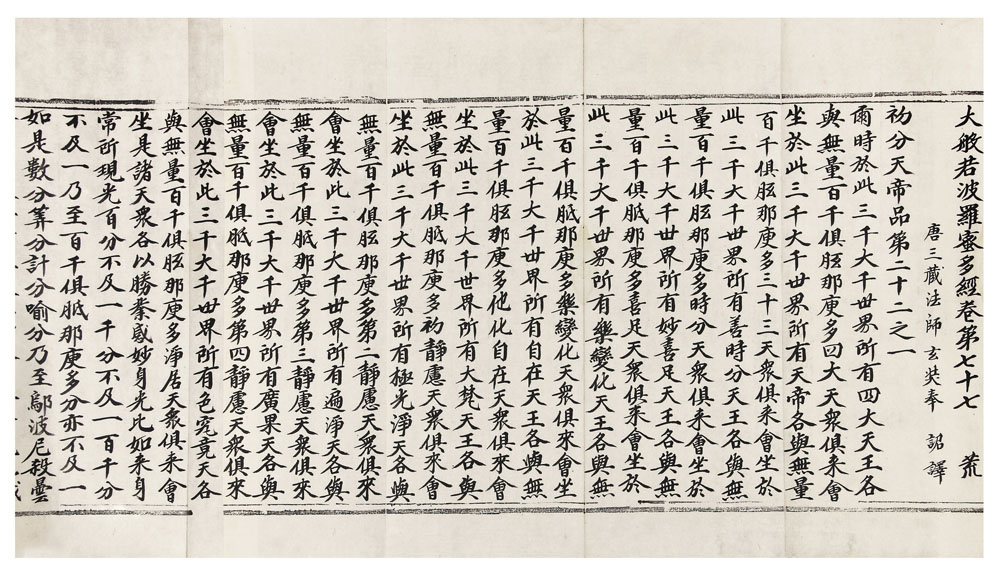 大般若波羅蜜多經卷第七十七　荒
唐三藏法師玄奘奉　詔譯
初分天帝品第二十二之一
爾時於此三千大千世界所有四大天王各
與無量百千俱胝那庾多四大天衆俱來會
坐於此三千大千世界所有天帝各與無量
百千俱胝那庾多三十三天衆俱來會坐於
此三千大千世界所有善時分天王各與無
量百千俱胝那庾多時分天衆俱來會坐於
此三千大千世界所有妙喜足天王各與無
量百千俱胝那庾多喜足天衆俱來會坐於
此三千大千世界所有樂變化天王各與無
量百千俱胝那庾多樂變化天衆俱來會坐
於此三千大千世界所有自在天王各與無
量百千俱胝那庾多他化自在天衆俱來會
坐於此三千大千世界所有大梵天王各與
無量百千俱胝那庾多初靜慮天衆俱來會
坐於此三千大千世界所有極光淨天各與
無量百千俱胝那庾多第二靜慮天衆俱來
會坐於此三千大千世界所有遍淨天各與
無量百千俱胝那庾多第三靜慮天衆俱來
會坐於此三千大千世界所有廣果天各與
無量百千俱胝那庾多第四靜慮天衆俱來
會坐於此三千大千世界所有色究竟天各
與無量百千俱胝那庾多淨居天衆俱來會
坐是諸天衆各以勝業感妙身光比如來身
常所現光百分不及一千分不及一百千分
不及一乃至百千俱胝那庾多分亦不及一
如是數分筭分計分喻分乃至鄔波尼殺曇